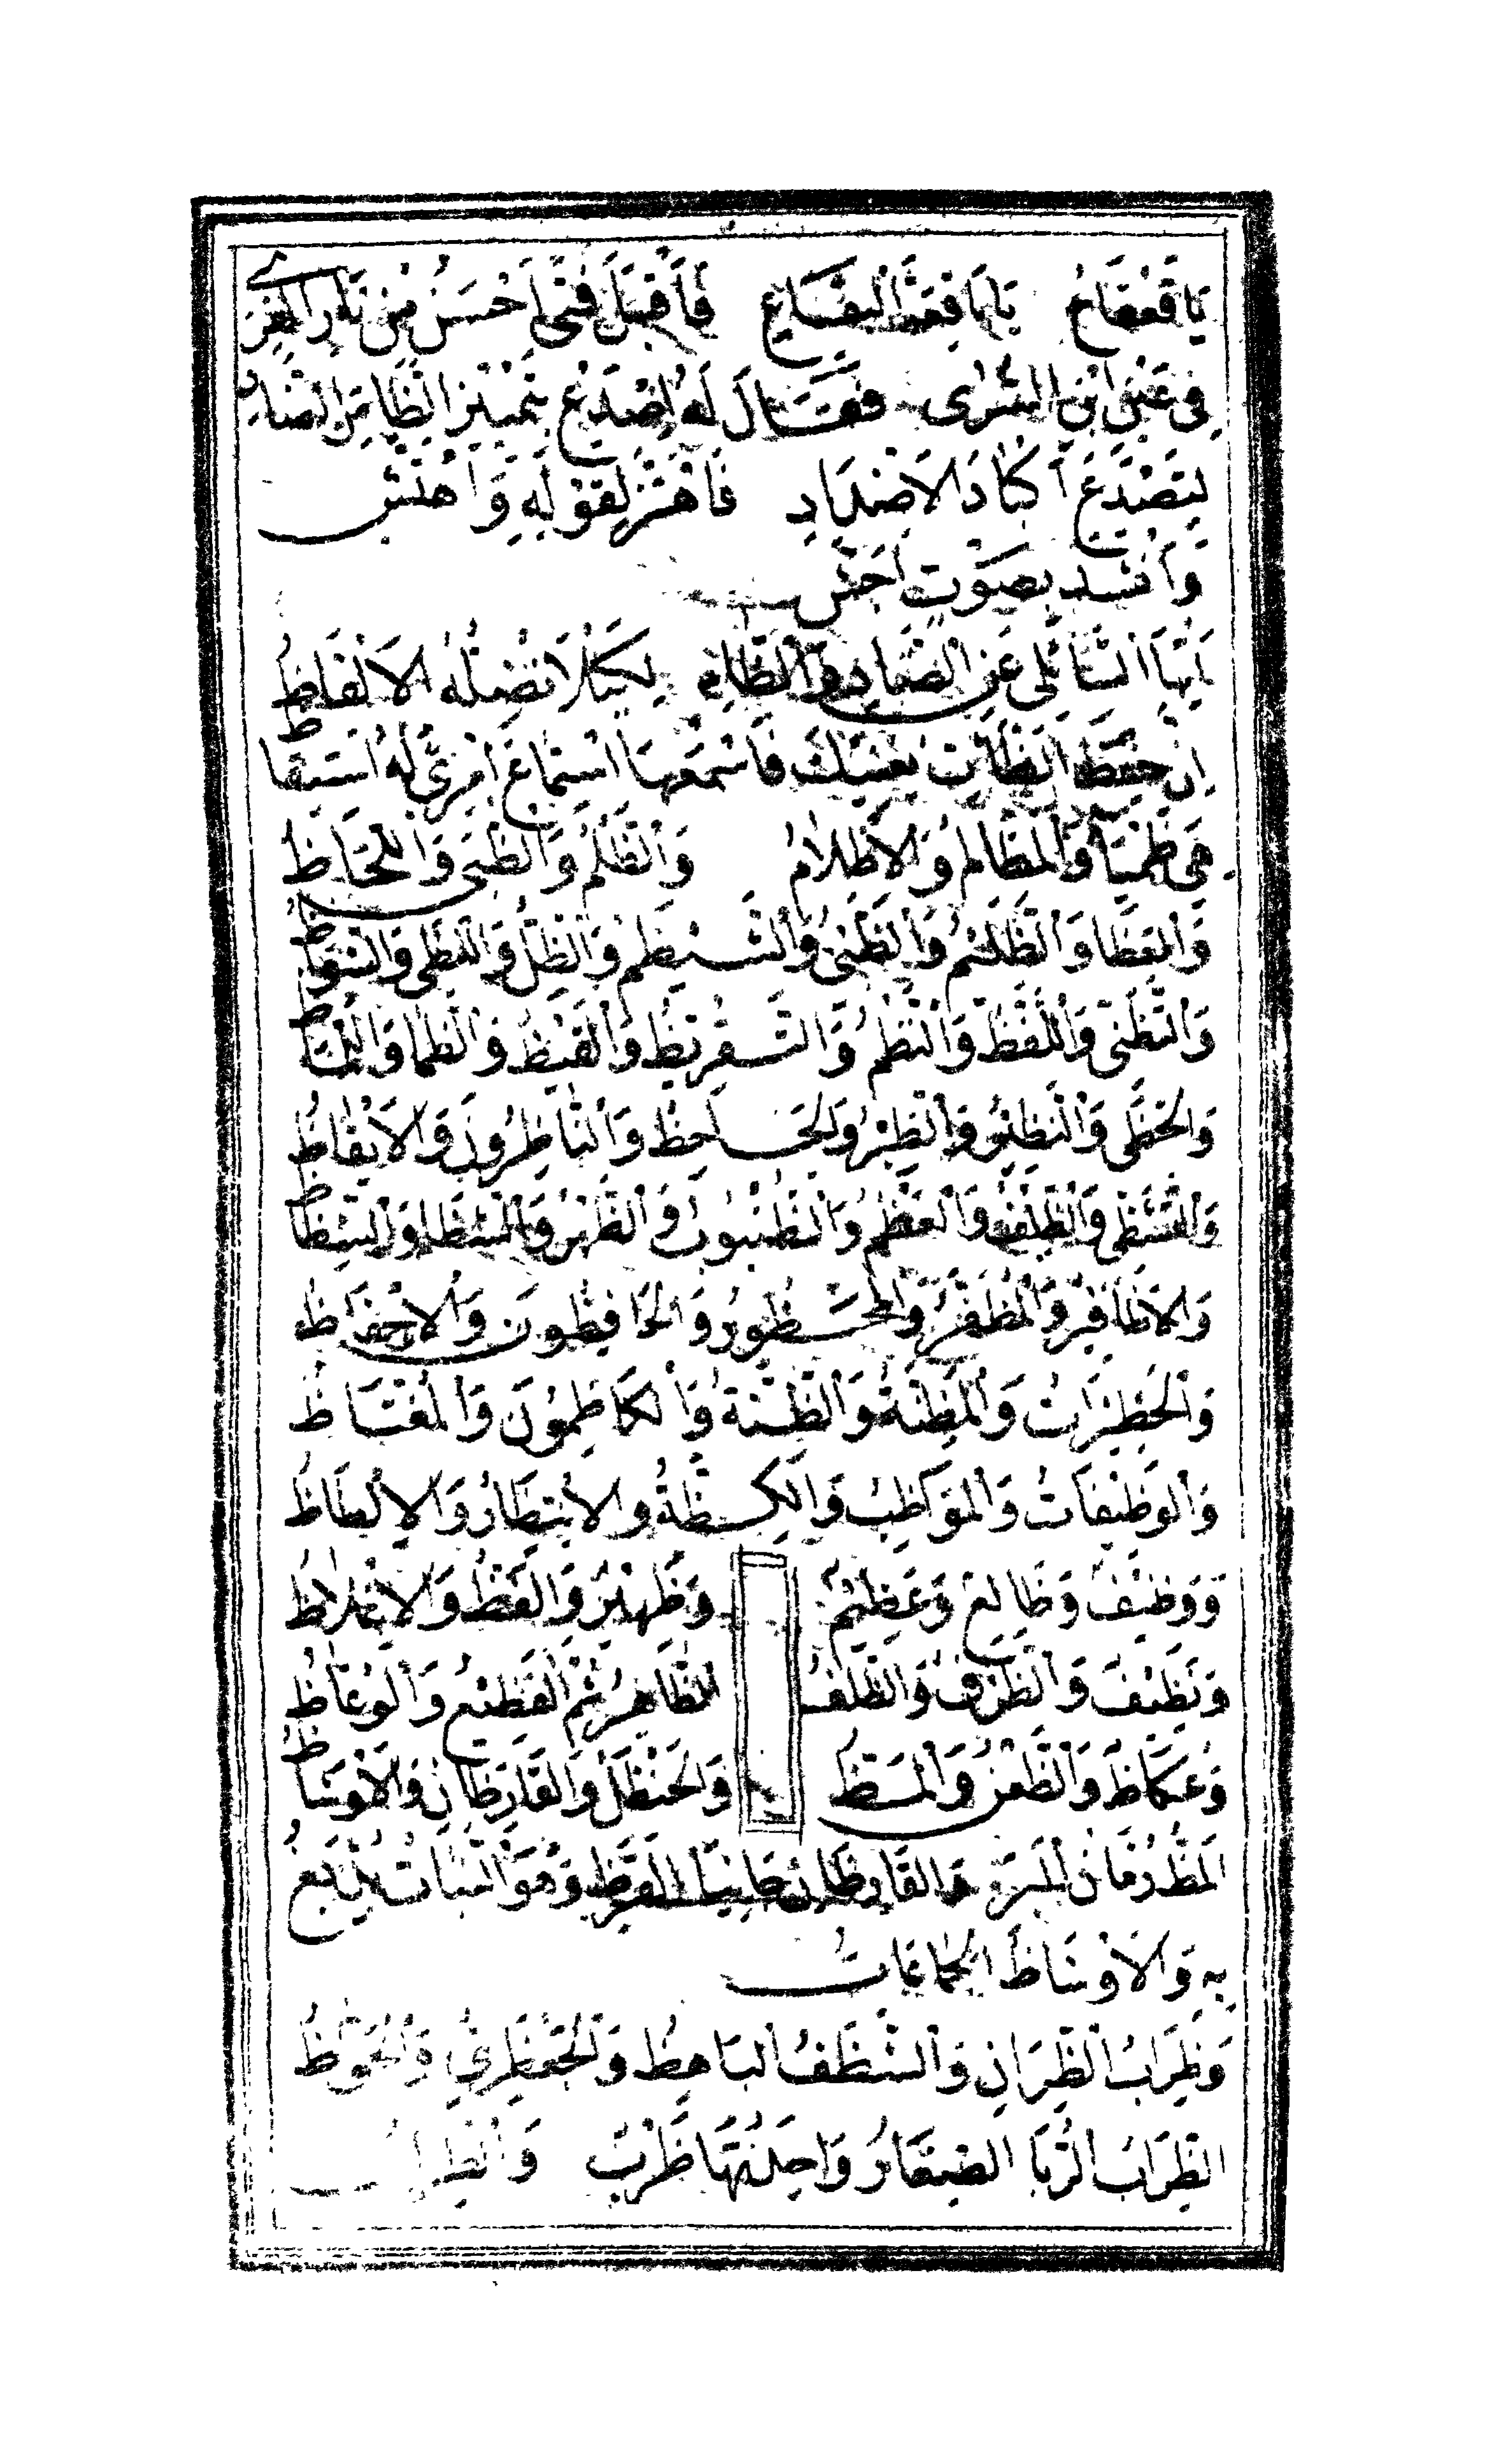 يَا قَعْقَاعُ يَا بَاقِعَةَ الْبِقَاعِ فَأَقْبَلَ فَتًى أَحْسَنُ مِنْ نَارِ الْقِرَى
فِى عَيْنِ ابْنِ السُّرَى فَقَالَ لَهُ اصْدَعْ بِتَمْيِيزِ الظَّاءِ مِنَ الضَّادِ
لِتَصْدَعَ أَكْبَادَ الأَضْدَادِ فَاهْتَزَّ لِقَوْلِهِ وَاهْتَشَّ
وَأَنْشَدَ بِصَوْتٍ أَجَشَّ
أَيُّهَا السَّائِلِى عَنِ الضَّادِ وَالظَّاءِ لِكَيْلَا تُضِلَّهُ الأَلْفَاظُ
إِنَّ حِفْظَ الظَّاءَاتِ يُغْنِيكَ فَاسْمَعْهَا اسْتِمَاعَ امْرِئٍ لَهُ اسْتِيقَاظُ
هِىَ ظَمْيَاءُ وَالْمَظَالِمُ وَالإِظْلَامُ وَالظَّلْمُ وَالظُّبَى وَاللَّحَاظُ
وَالْعَظَا وَالظَّلِيمُ وَالظَّبْىُ وَالشَّيْظَمُ وَالظِّلُّ وَاللَّظَى وَالشُّوَاظُ
وَالتَّظَنِّى وَاللَّفْظُ وَالنَّظْمُ وَالتَّقْرِيظُ وَالْقَيْظُ وَالظَّمَا وَاللَّمَاظُ
وَالْحِظَى وَالنَّظِيرُ وَالظِّئْرُ وَالْجَاحِظُ وَالنَّاظِرُونَ وَالأَيْقَاظُ
وَالتَّشَظِّى وَالظِّلْفُ وَالْعَظْمُ وَالظُّنْبُوبُ وَالظَّهْرُ وَالشَّظَا وَالشِّظَاظُ
وَالأَظَافِيرُ وَالْمُظَفَّرُ وَالْمَحْظُورُ وَالْحَافِظُونَ وَالإِحْفَاظُ
وَالْحَظِيرَاتُ وَالْمَظِنَّةُ وَالظِّنَّةُ وَالْكَاظِمُونَ وَالْمُغْتَاظُ
وَالْوَظِيفَاتُ وَالْمُوَاظِبُ وَالْكِظَّةُ وَالإِنْتِظَارُ وَالإِلْظَاظُ
وَوَظِيفٌ وَظَالِعٌ وَعَظِيمٌ وَظَهِيرٌ وَالْفَظُّ وَالإِغْلَاظُ
وَنَظِيفٌ وَالظَّرْفُ وَالظَّلَفُ الظَّاهِرُ ثُمَّ الْفَظِيعُ وَالْوُعَّاظُ
وَعُكَاظٌ وَالظَّعْنُ وَالْمَظُّ وَالْحَنْظَلُ وَالْقَارِظَانِ وَالأَوْشَاظُ
الْمَظُّ رُمَّانُ الْبَرِّ وَالْقَارِظَانِ جَانِيَا الْقَرَظِ وَهُوَ النَّبَاتُ يُدْبَغُ
بِهِ وَالأَوْشَاظُ الْجَمَاعَاتُ
وَظِرَابُ الظِّرَّانِ وَالشَّظَفُ الْبَاهِظُ وَالْجَعْظَرِىُّ وَالْجَوَّاظُ
الظِّرَابُ الرُّبَا الصِّغَارُ وَاحِدَتُهَا ظَرِبٌ